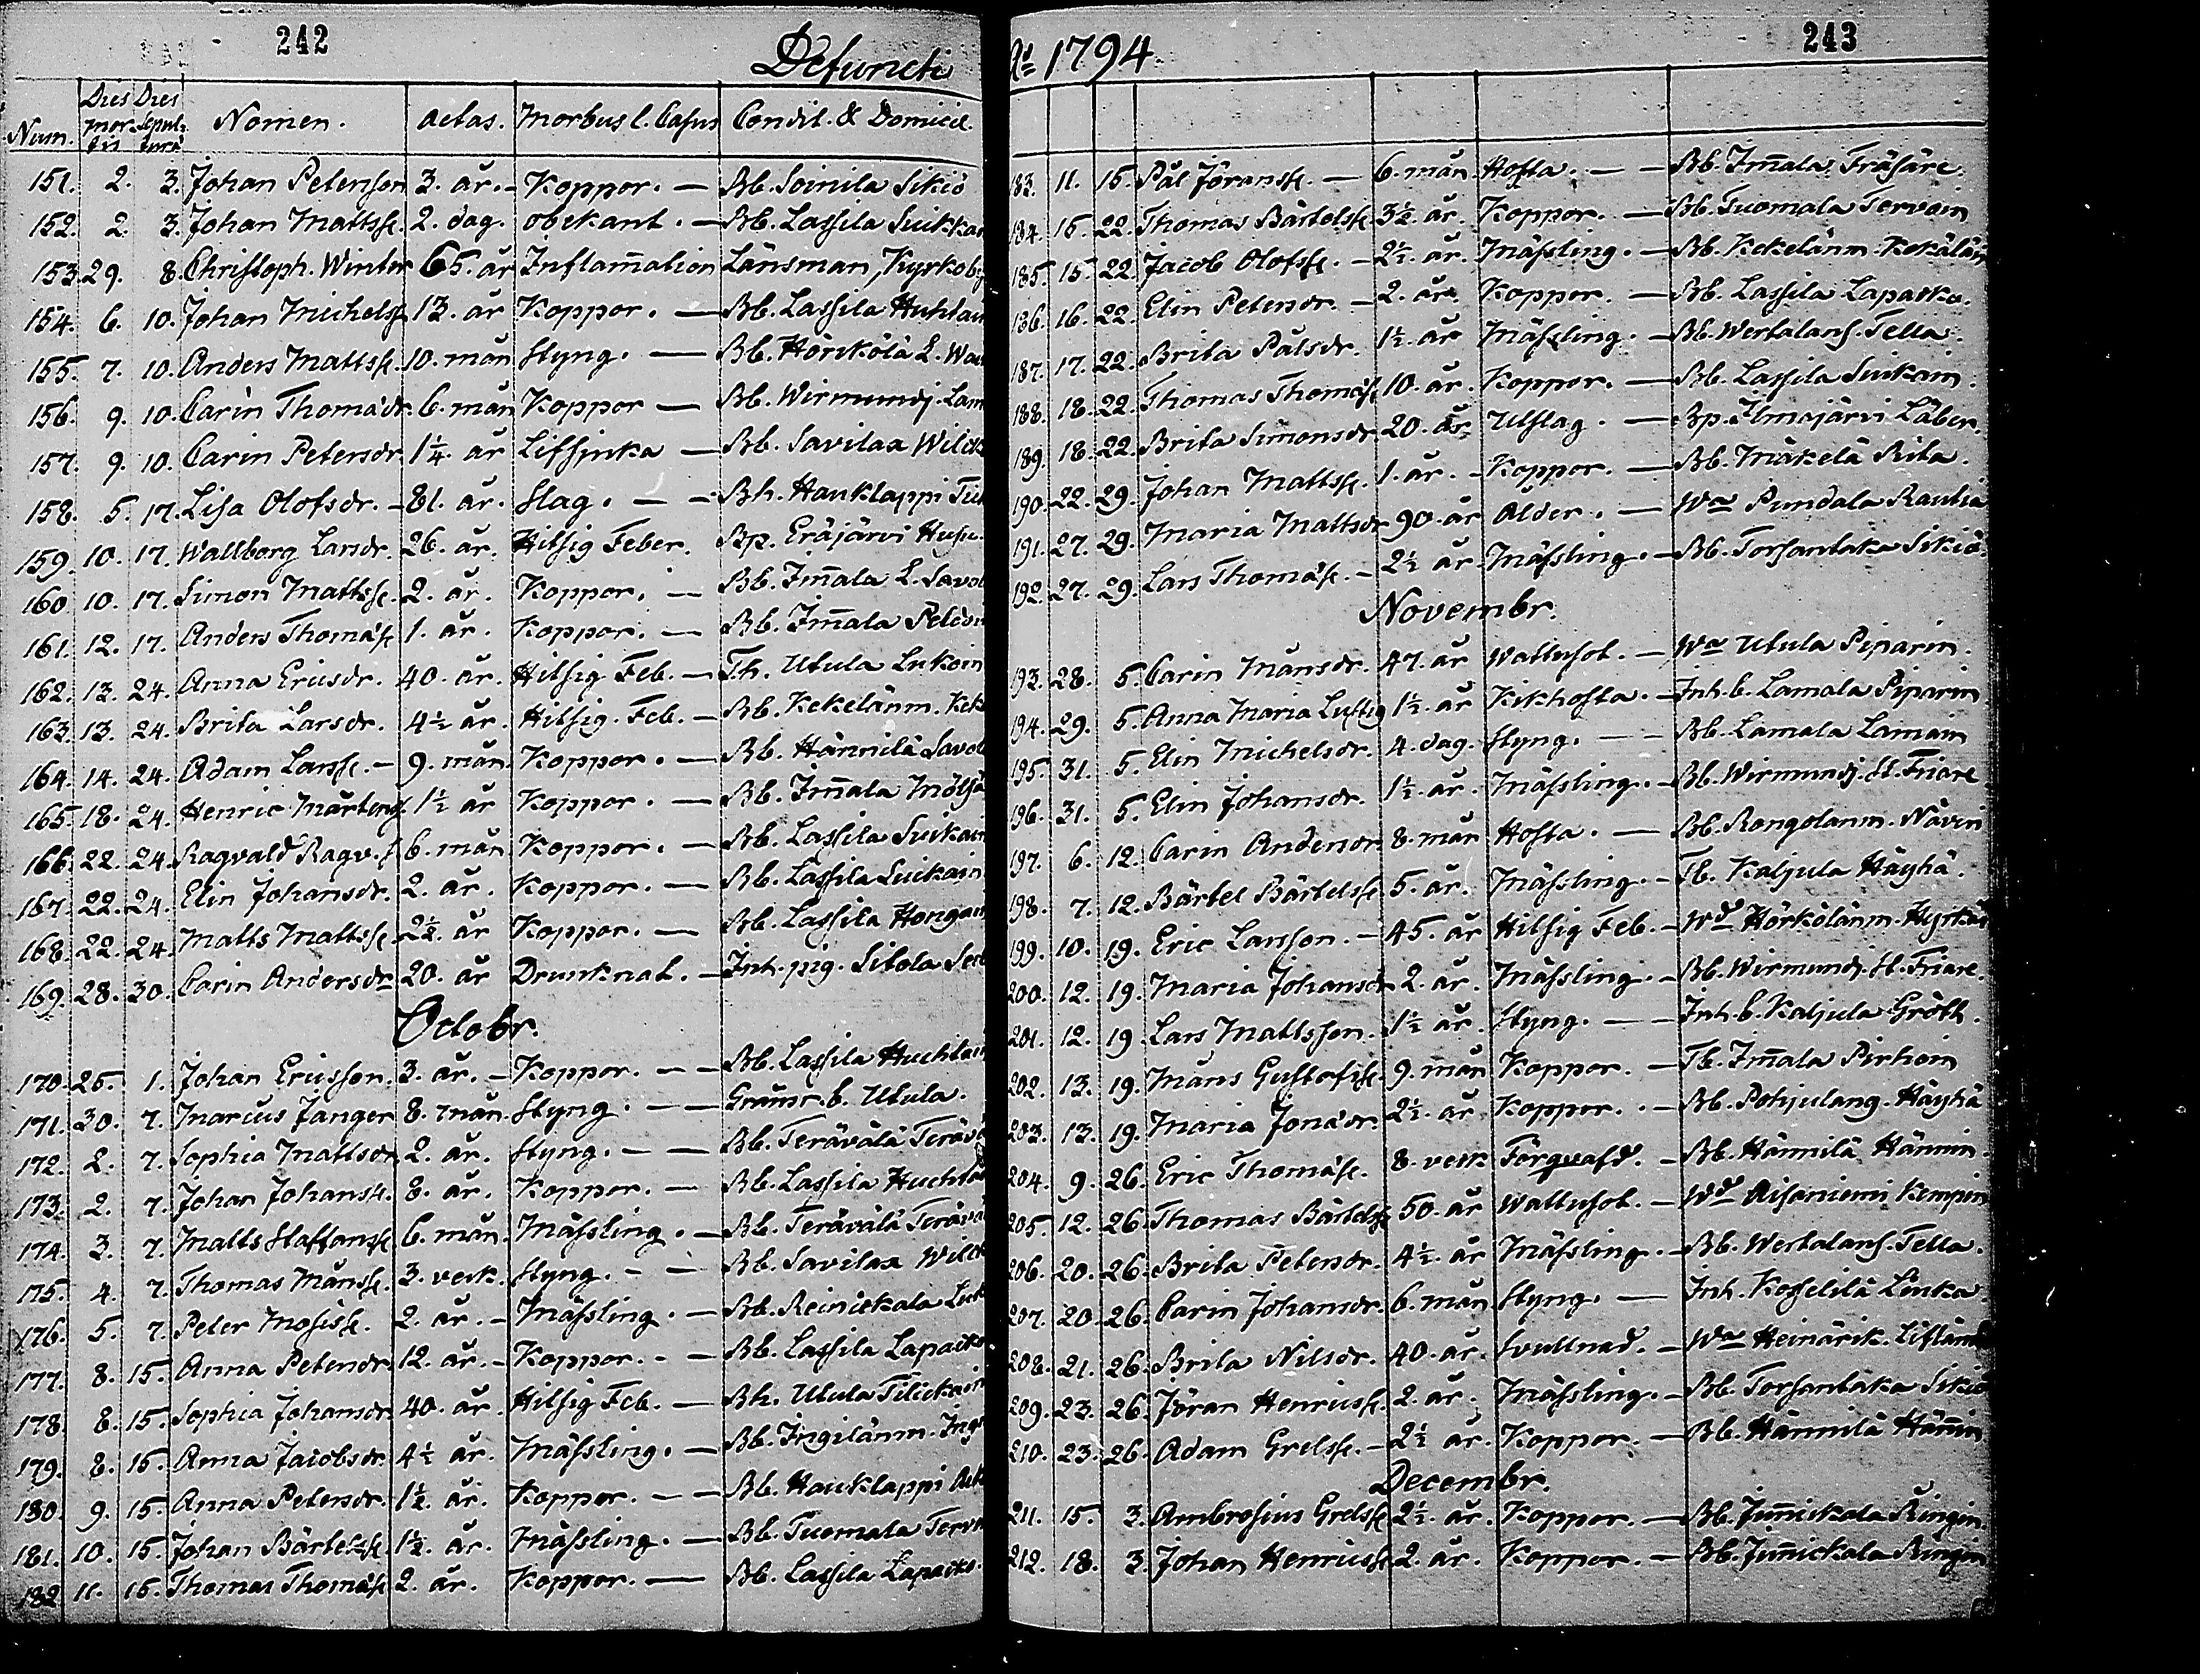 242
Defuncti
Num. Dies mortis Dies sepulturæ Nomen. aetas. Morbus l. Casus Condit. & Domicil.
151. 2. 3. Johan Petersson 3. år. - Koppor. — Bb. Soinila Sikiö
152. 2. 3. Johan Mattss. 2. dag. obekant. — Bb. Lassila Suikka
153. 29. 8. Christoph. Winter 65. år Inflam̅ation Länsman, Kyrkoby
154. 6. 10. Johan Michelss. 13. år Koppor. — Bb. Lassila Huhtan
155. 7. 10. Anders Mattss. 10. mån Styng. — Bb. Hörkölä L.
156. 9. 10. Carin Thomædr. 6. mån Koppor — Bb. Wirmundj. Lam
157. 9. 10. Carin Petersdr. 1¼ år Lifsjuka — Bb. Savilax Wilck
158. 5. 17. Lisa Olofsdr. - 81. år. Slag. — Bh. Hauklappi
159. 10. 17. Wallborg Larsdr. 26. år. Hitsig Feber. Bp. Eräjärvi Husu.
160. 10. 17. Simon Mattss. 2. år. Koppor. — Bb. Im̅ala L. Savol
161. 12. 17. Anders Thomæss. 1. år. Koppor. — Bb. Im̅ala Peldon
162. 13. 24. Anna Ericsdr. 40. år. Hitsig Feb. — Th. Utula Lukoin
163. 13. 24. Brita Larsdr. 4½ år. Hitsig. Feb. — Bb. Kekelänm. Kek
164. 14. 24. Adam Larss. - 9. mån. Koppor. — Bb. Hännilä Savol
165. 18. 24. Henric Mårtenss. 1½ år Koppor. — Bb. Im̅ala
166. 22. 24. Ragvald Ragv.s. 6. mån Koppor. — Bb. Lassila Suikain
167. 22. 24. Elin Johansdr. 2. år. Koppor. — Bb. Lassila Suikain
168. 22. 24. Matts Mattss. 2½. år Koppor. — Bb. Lassila Hongain
169. 28. 30. Carin Andersdr 20. år Drunknat. — Inh. pig. Sitola
Octobr.
170. 25. 1. Johan Ericsson. 3. år. - Koppor. — Bb. Lassila Huchtain
171. 30. 7. Marcus Janger 8. mån. Styng. — b. Utula.
172. 2. 7. Sophia Mattsdr. 2. år. Styng. — Bb. Terävälä Teräv
173. 2. 7. Johan Johanss. 8. år. Koppor. — Bb. Lassila Huchta
174. 3. 7. Matts Staffanss. 6. mån. Mässling. — Bb. Terävälä Teräv
175. 4. 7. Thomas Månss. 3. veck. Styng. — Bb. Savilax Wilck
176. 5. 7. Peter Mosiss. 2. år. - Mässling. — Bb. Reinickala
177. 8. 15. Anna Petersdr. 12. år. - Koppor. — Bb. Lassila Lapack
178. 8. 15. Sophia Johansdr. 40. år. Hitsig Feb. — Bh. Utula Tilickain
179. 8. 15. Anna Jacobsdr. 4½ år. Mässling. — Bb. Ingilänm. Ing
180. 9. 15. Anna Petersdr. 1½. år. Koppor. — Bb. Hauklappi
181. 10. 15. Johan Bärtelss. 1½. år. Mässling. — Bb. Tuomala Terv
182. 11. 15. Thomas Thomæss. 2. år. Koppor. — Bb. Lassila Lapack
243
Aº 1794.
183. 11. 15. Pål Jöranss. — 6. mån Hosta. — Bb. Im̅ala Fräsäre.
184. 15. 22. Thomas Bärtelss. 3½. år. Koppor. — Bb. Tuomala Tervoin
185. 15. 22. Jacob Olofss. - 2½. år. Mässling. — Bb. Kekelänm. Kekäläin
186. 16. 22. Elin Petersdr. - 2. år. Koppor. — Bb. Lassila Lapatko.
187. 17. 22. Brita Pålsdr. 1½. år Mässling. — Bb. Wertalans. Tella.
188. 18. 22. Thomas Thomæss. 10. år. Koppor. — Bb. Lassila Suikain.
189. 18. 22. Brita Simonsdr 20. år. Utslag. — Bp. Ilmajärvi Läber.
190. 22. 29. Johan Mattss. 1. år. - Koppor. — Bb. Mäkelä Rita.
191. 27. 29. Maria Mattsdr 90. år Ålder. — Wa Pundala Rautia
192. 27. 29. Lars Thomæss. - 2½ år Mässling. — Bb. Torsantaka Sikiö
Novembr.
193. 28. 5. Carin Månsdr. 47. år Wattusot. — Wa Utula Piparin.
194. 29. 5. Anna Maria Lustig 1½. år Kikhosta. — Inh. b. Lamala Piparin
195. 31. 5. Elin Michelsdr. 4. dag. Styng. — Bb. Lamala Lamain
196. 31. 5. Elin Johansdr. 1½. år. Mässling. — Bb. Wirmundj. St. Friare
197. 6. 12. Carin Andersdr 8. mån Hosta. — Bb. Rongolanm. Nävin
198. 7. 12. Bärtel Bärtelss. 5. år. Mässling. — Tb. Kaljula Häyhä.
199. 10. 19. Eric Larsson. - 45. år Hitsig Feb. — Wd Hörkölänm. Hyrkäs
200. 12. 19. Maria Johansdr. 2. år. Mässling. — Bb. Wirmundj. St. Friare.
201. 12. 19. Lars Mattsson. 1½ år. Styng. — Inh. b. Kaljula Gröth.
202. 13. 19. Måns Gustafss. 9. mån Koppor. — Tb. Im̅ala Pirhoin
203. 13. 19. Maria Jonædr. 2½. år. Koppor. — Bb. Pohjulang. Häyhä
204. 9. 26. Eric Thomæss. 8. veck Förqvafd. — Bb. Hännilä Hännin.
205. 12. 26. Thomas Bärtelss. 50. år Wattusot. — Wd Aisaniemi Kempin
206. 20. 26. Brita Petersdr. 4½. år Mässling. — Bb. Wertalans. Tella.
207. 20. 26. Carin Johansdr. 6. mån Styng. — Inh. Kesselilä Linka
208. 21. 26. Brita Nilsdr. 40. år. Svullnad. — Wa Heinärik. Liflän
209. 23. 26. Jöran Henricss. 2. år. Mässling. — Bb. Torsantaka Sikiö
210. 23. 26. Adam Grelss. - 2½ år. Koppor. — Bb. Hännilä Hännin
Decembr.
211. 15. 3. Ambrosius Grelss. 2½. år. Koppor. — Bb. Jun̅ickala Ringin.
212. 18. 3. Johan Henricss. 2. år. Koppor. — Bb. Jun̅ickala Ringin